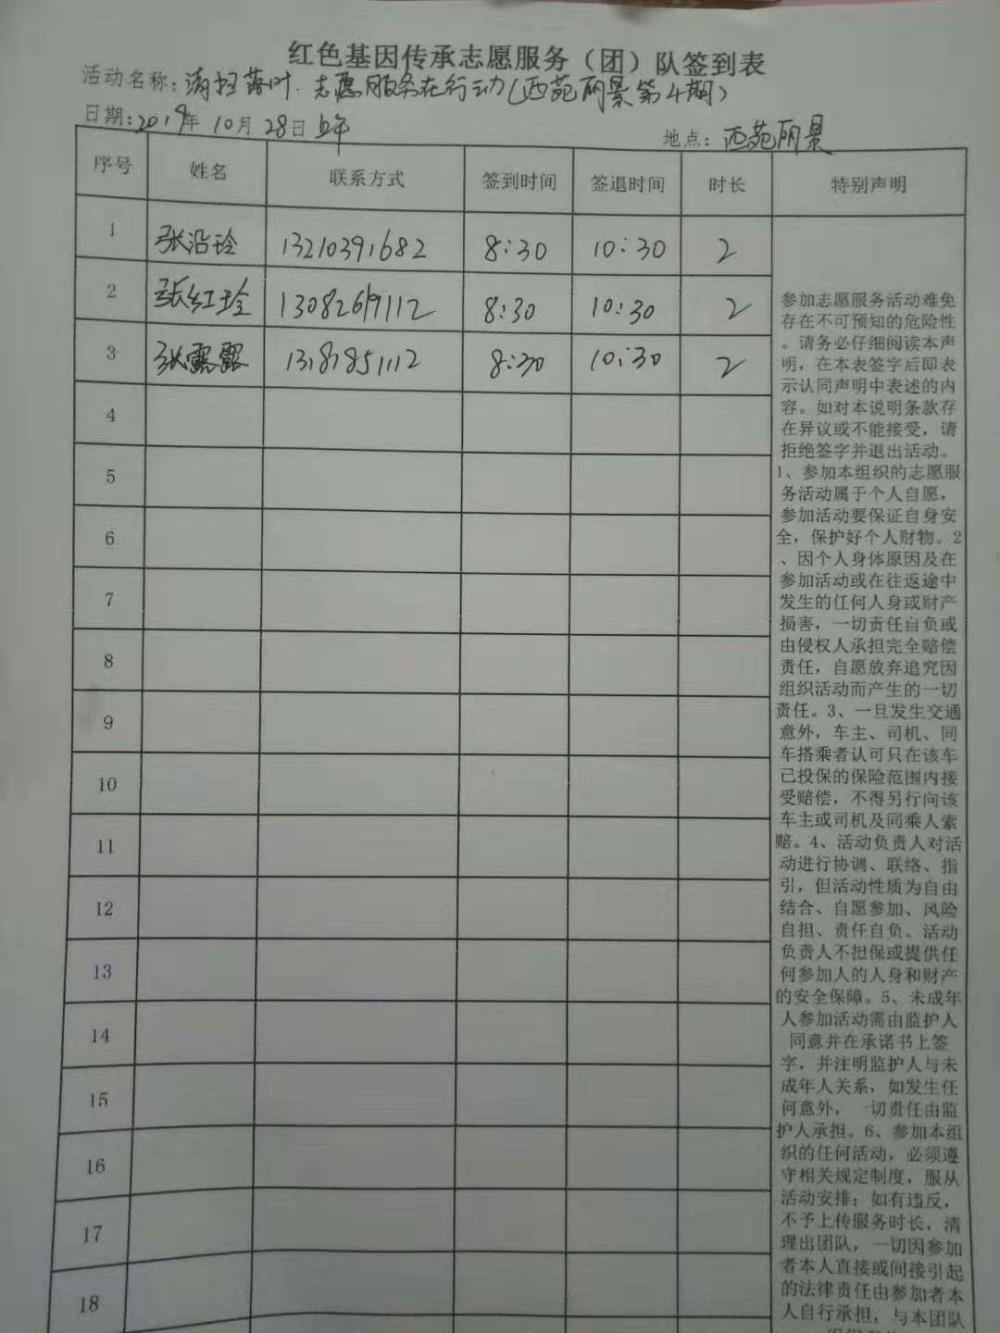 红色基因传承志愿服务（团）队签到表
活动名称：清扫落叶．志愿服务在行动（西苑丽景第4期）
日期：2019年10月28日上午
地点：西苑丽景
序号 姓名 联系方式 签到时间 签退时间 时长 特别声明
1 张沿玲 13210391682 8:30 10:30 2
2 张红玲 13082619112 8:30 10:30 2
3 张露露 13181851112 8:30 10:30 2
4
5
6
7
8
9
10
11
12
13
14
15
16
17
18
参加志愿服务活动难免
存在不可预知的危险性
。请务必仔细阅读本声
明，在本表签字后即表
示认同声明中表述的内
容。如对本说明条款存
在异议或不能接受，请
拒绝签字并退出活动。
1、参加本组织的志愿服
务活动属于个人自愿，
参加活动要保证自身安
全，保护好个人财物。2
、因个人身体原因及在
参加活动或在往返途中
发生的任何人身或财产
损害，一切责任自负或
由侵权人承担完全赔偿
责任，自愿放弃追究因
组织活动而产生的一切
责任。3、一旦发生交通
意外，车主、司机、同
车搭乘者认可只在该车
已投保的保险范围内接
受赔偿，不得另行向该
车主或司机及同乘人索
赔。4、活动负责人对活
动进行协调、联络、指
引，但活动性质为自由
结合、自愿参加、风险
自担、责任自负、活动
负责人不担保或提供任
何参加人的人身和财产
的安全保障。5、未成年
人参加活动需由监护人
同意并在承诺书上签
字，并注明监护人与未
成年人关系，如发生任
何意外，一切责任由监
护人承担。6、参加本组
织的任何活动，必须遵
守相关规定制度，服从
活动安排；如有违反，
不予上传服务时长，清
理出团队，一切因参加
者本人直接或间接引起
的法律责任由参加者本
人自行承担，与本团队